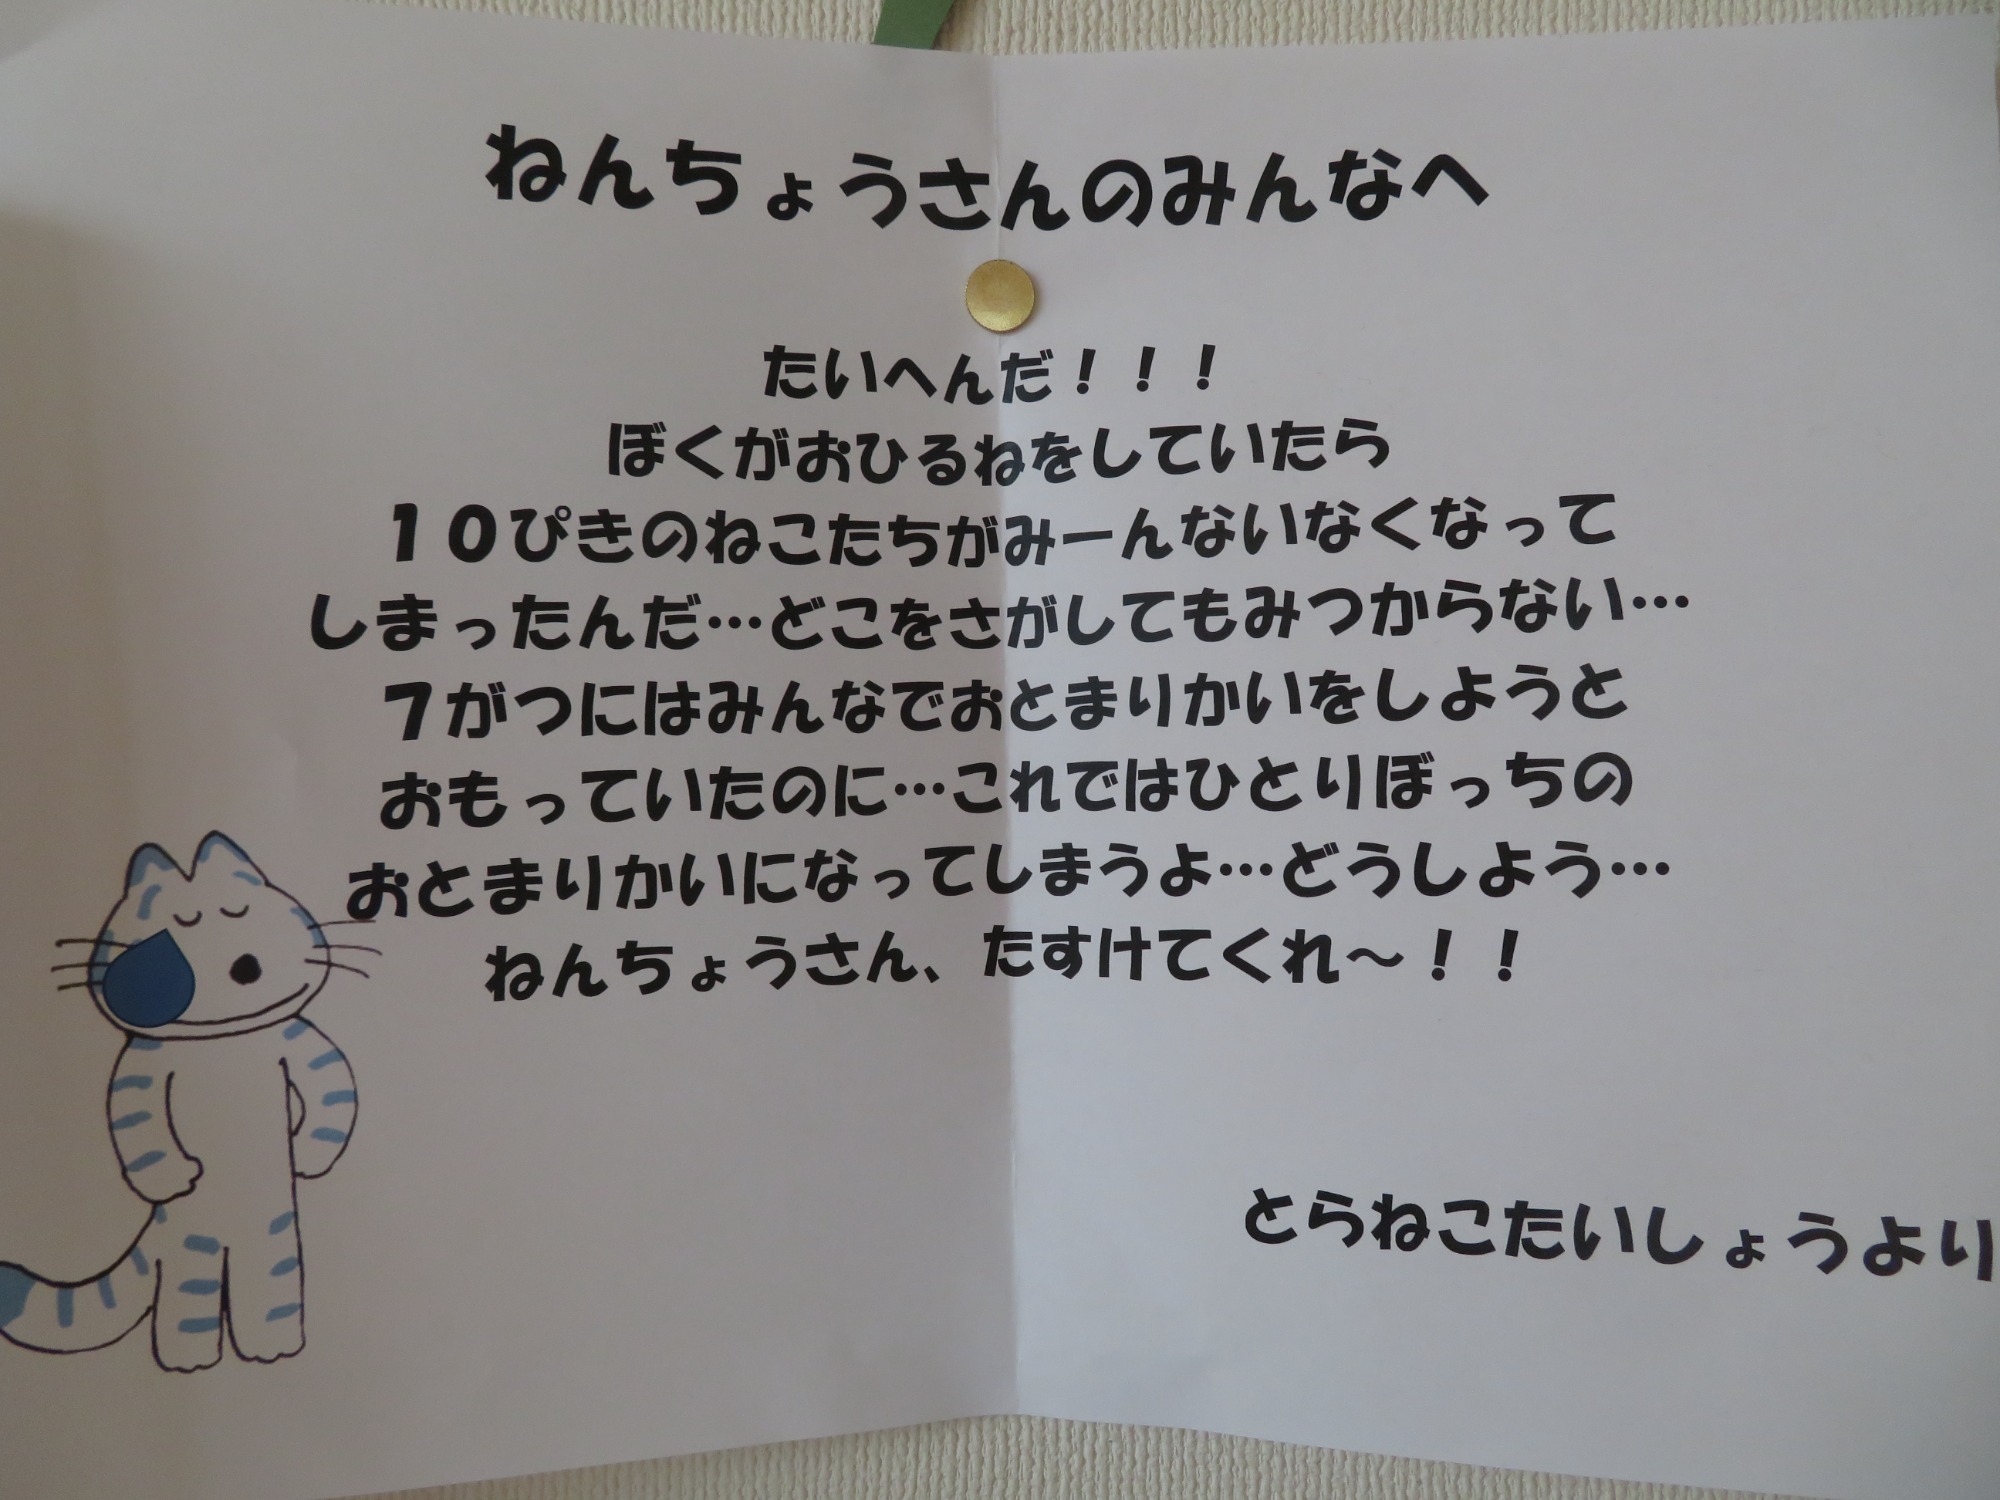 ねんちょうさんのみんなへ
たいへんだ！！！
ぼくがおひるねをしていたら
１０ぴきのねこたちがみーんないなくなって
しまったんだ…どこをさがしてもみつからない…
７がつにはみんなでおとまりかいをしようと
おもっていたのに…これではひとりぼっちの
おとまりかいになってしまうよ…どうしよう…
ねんちょうさん、たすけてくれ～！！
とらねこたいしょうより